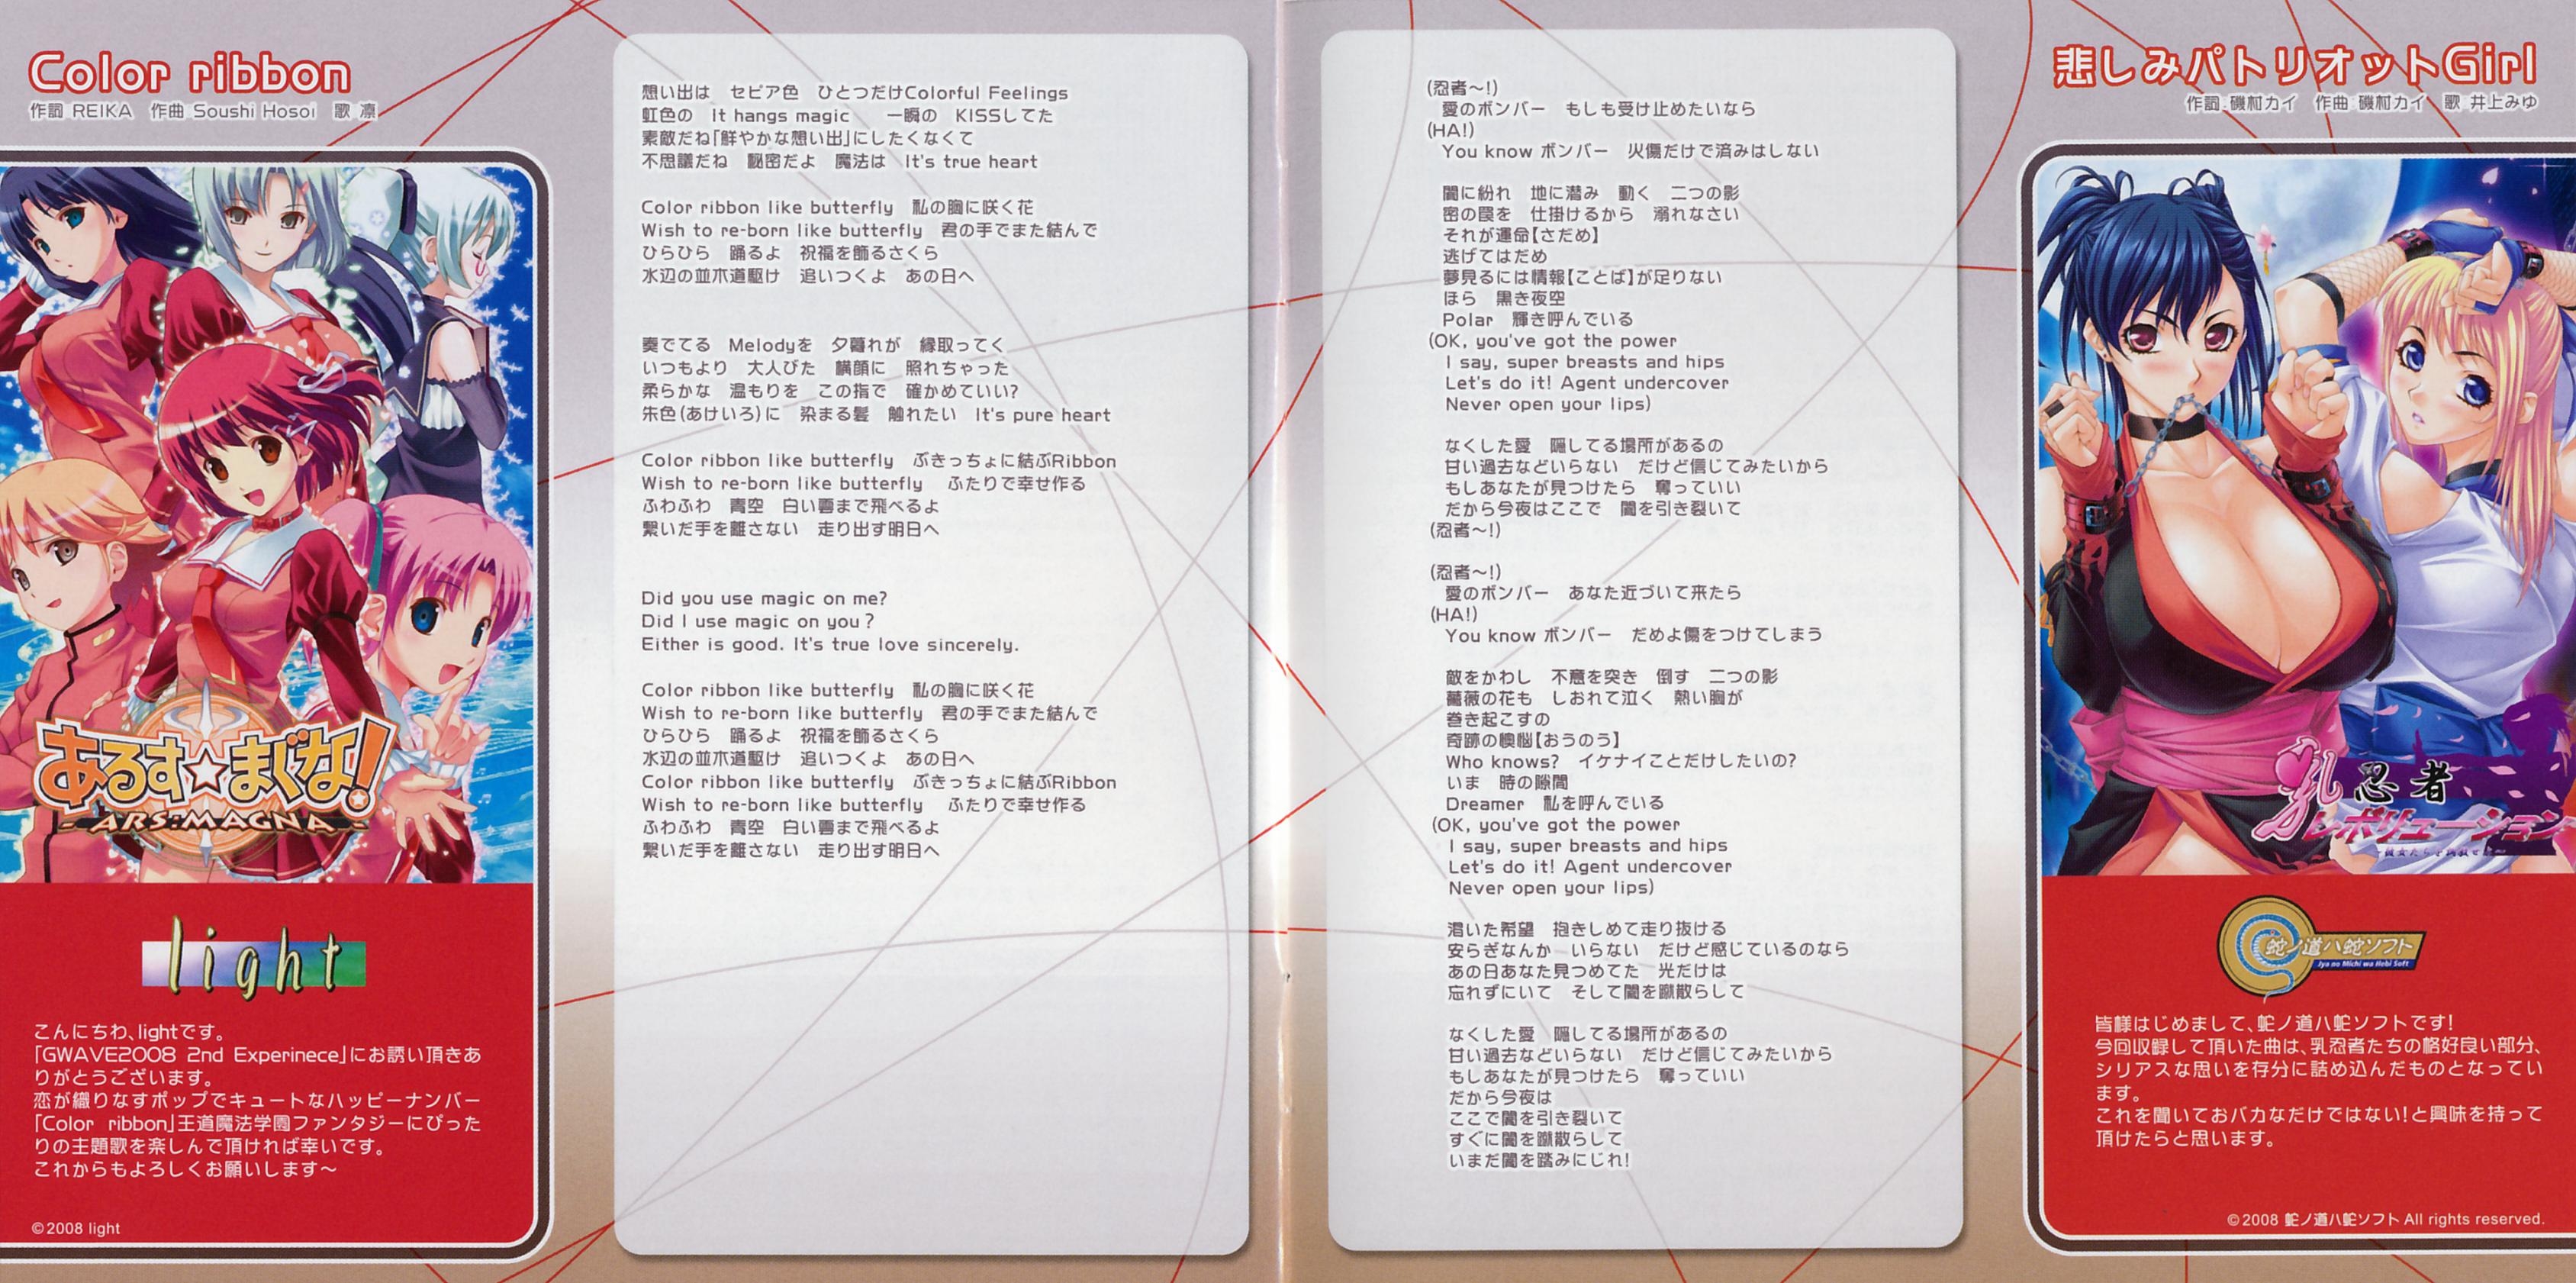 Color ribbon
作詞 REIKA　作曲 Soushi Hosoi　歌 凛
あるす☆まぐな!
- ARS:MAGNA -
light
こんにちわ、lightです。
「GWAVE2008 2nd Experinece」にお誘い頂きあ
りがとうございます。
恋が織りなすポップでキュートなハッピーナンバー
「Color ribbon」王道魔法学園ファンタジーにぴった
りの主題歌を楽しんで頂ければ幸いです。
これからもよろしくお願いします〜
©2008 light
想い出は　セピア色　ひとつだけColorful Feelings
虹色の　It hangs magic　　一瞬の　KISSしてた
素敵だね「鮮やかな想い出」にしたくなくて
不思議だね　秘密だよ　魔法は　It's true heart
Color ribbon like butterfly　私の胸に咲く花
Wish to re-born like butterfly　君の手でまた結んで
ひらひら　踊るよ　祝福を飾るさくら
水辺の並木道駆け　追いつくよ　あの日へ
奏でてる　Melodyを　夕暮れが　縁取ってく
いつもより　大人びた　横顔に　照れちゃった
柔らかな　温もりを　この指で　確かめていい?
朱色(あけいろ)に　染まる髪　触れたい　It's pure heart
Color ribbon like butterfly　ぶきっちょに結ぶRibbon
Wish to re-born like butterfly　ふたりで幸せ作る
ふわふわ　青空　白い雲まで飛べるよ
繋いだ手を離さない　走り出す明日へ
Did you use magic on me?
Did I use magic on you ?
Either is good. It's true love sincerely.
Color ribbon like butterfly　私の胸に咲く花
Wish to re-born like butterfly　君の手でまた結んで
ひらひら　踊るよ　祝福を飾るさくら
水辺の並木道駆け　追いつくよ　あの日へ
Color ribbon like butterfly　ぶきっちょに結ぶRibbon
Wish to re-born like butterfly　ふたりで幸せ作る
ふわふわ　青空　白い雲まで飛べるよ
繋いだ手を離さない　走り出す明日へ
(忍者〜!)
愛のボンバー　もしも受け止めたいなら
(HA!)
You know ボンバー　火傷だけで済みはしない
闇に紛れ　地に潜み　動く　二つの影
密の罠を　仕掛けるから　溺れなさい
それが運命【さだめ】
逃げてはだめ
夢見るには情報【ことば】が足りない
ほら　黒き夜空
Polar　輝き呼んでいる
(OK, you've got the power
I say, super breasts and hips
Let's do it! Agent undercover
Never open your lips)
なくした愛　隠してる場所があるの
甘い過去などいらない　だけど信じてみたいから
もしあなたが見つけたら　奪っていい
だから今夜はここで　闇を引き裂いて
(忍者〜!)
(忍者〜!)
愛のボンバー　あなた近づいて来たら
(HA!)
You know ボンバー　だめよ傷をつけてしまう
敵をかわし　不意を突き　倒す　二つの影
薔薇の花も　しおれて泣く　熱い胸が
巻き起こすの
奇跡の懊悩【おうのう】
Who knows?　イケナイことだけしたいの?
いま　時の隙間
Dreamer　私を呼んでいる
(OK, you've got the power
I say, super breasts and hips
Let's do it! Agent undercover
Never open your lips)
渇いた希望　抱きしめて走り抜ける
安らぎなんか　いらない　だけど感じているのなら
あの日あなた見つめてた　光だけは
忘れずにいて　そして闇を蹴散らして
なくした愛　隠してる場所があるの
甘い過去などいらない　だけど信じてみたいから
もしあなたが見つけたら　奪っていい
だから今夜は
ここで闇を引き裂いて
すぐに闇を蹴散らして
いまだ闇を踏みにじれ!
悲しみパトリオットGirl
作詞 磯村カイ　作曲 磯村カイ　歌 井上みゆ
乳忍者
レボリューション
蛇ノ道ハ蛇ソフト
Jya no Michi wa Hebi Soft
皆様はじめまして、蛇ノ道ハ蛇ソフトです!
今回収録して頂いた曲は、乳忍者たちの格好良い部分、
シリアスな思いを存分に詰め込んだものとなってい
ます。
これを聞いておバカなだけではない!と興味を持って
頂けたらと思います。
©2008 蛇ノ道ハ蛇ソフト All rights reserved.